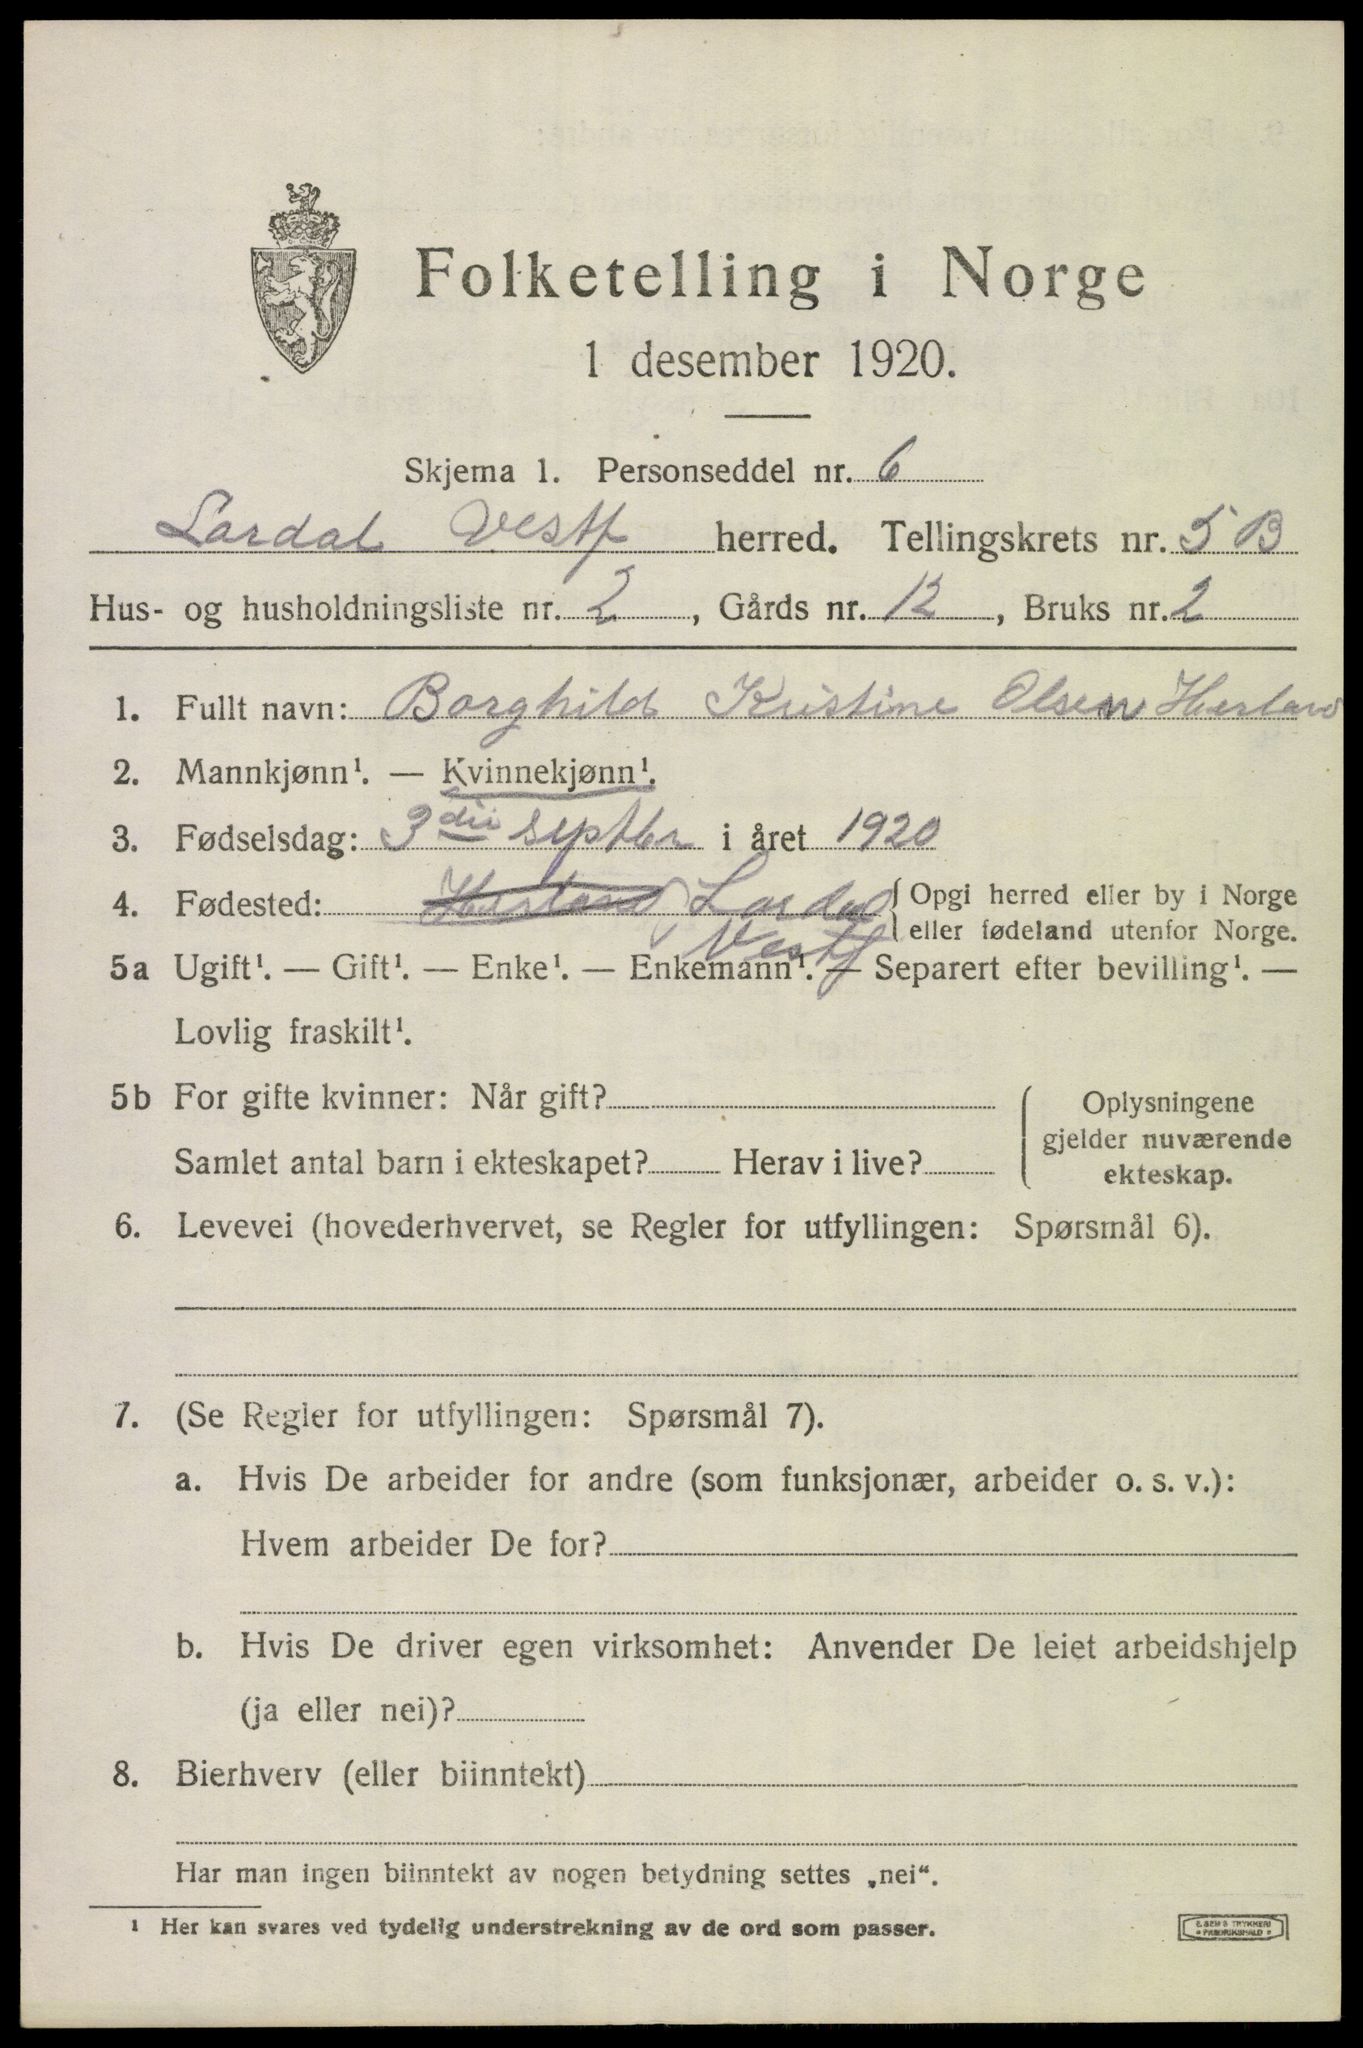 Folketelling i Norge
1 desember 1920.
Skjema 1. Personseddel nr. 6
Lardal Vestf herred. Tellingskrets nr. 5 B
Hus- og husholdningsliste nr. 2, Gårds nr. 12, Bruks nr. 2
1. Fullt navn: Borghild Kristine Olsen Herland
2. Mannkjønn¹. — Kvinnekjønn¹.
3. Fødselsdag: 3die septbr i året 1920
4. Fødested: Herland Lardal { Opgi herred eller by i Norge
Vestf eller fødeland utenfor Norge.
5a Ugift¹. — Gift¹. — Enke¹. — Enkemann¹. — Separert efter bevilling¹. —
Lovlig fraskilt¹.
5b For gifte kvinner: Når gift? Oplysningene
gjelder nuværende
Samlet antal barn i ekteskapet? Herav i live? ekteskap.
6. Levevei (hovederhvervet, se Regler for utfyllingen: Spørsmål 6).
7. (Se Regler for utfyllingen: Spørsmål 7).
a. Hvis De arbeider for andre (som funksjonær, arbeider o. s. v.):
Hvem arbeider De for?
b. Hvis De driver egen virksomhet: Anvender De leiet arbeidshjelp
(ja eller nei)?
8. Bierhverv (eller biinntekt)
Har man ingen biinntekt av nogen betydning settes „nei“.
¹ Her kan svares ved tydelig understrekning av de ord som passer.
E. SEM'S TRYKKERI
FREDRIKSHALD